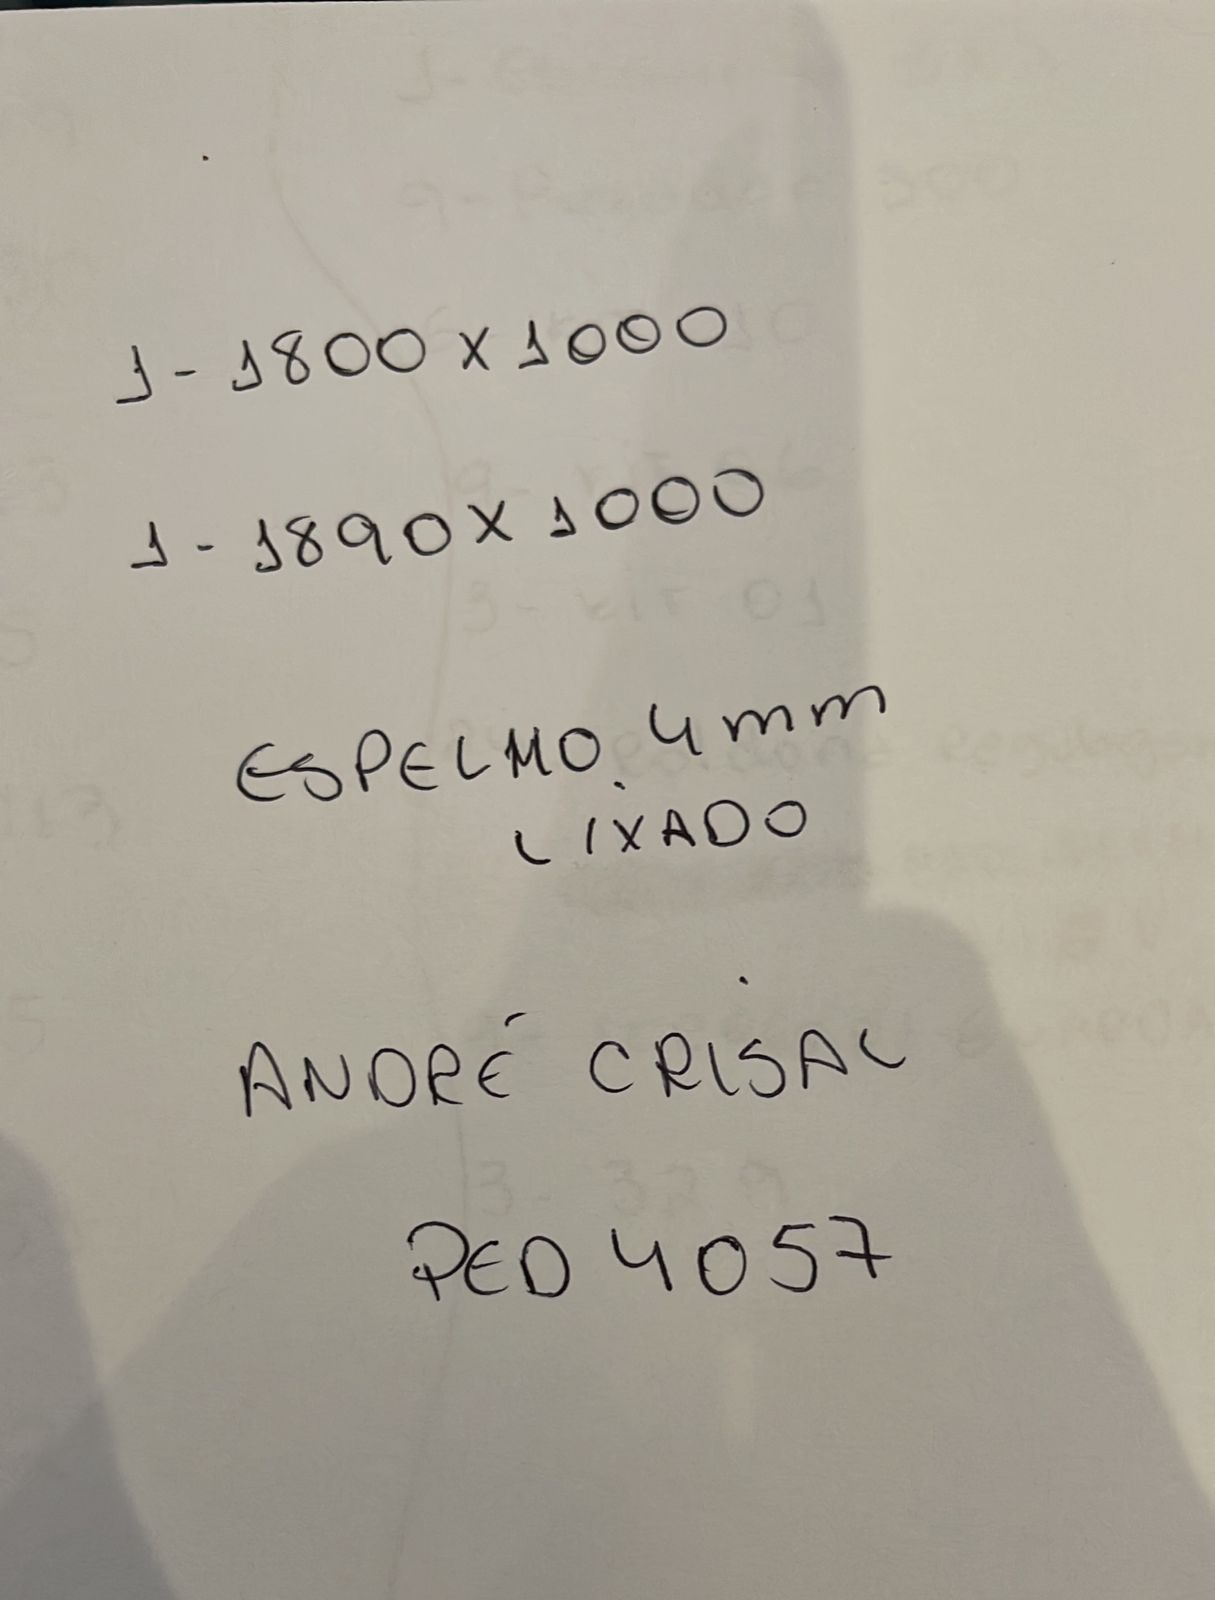 1 - 1800 x 1000
1 - 1890 x 1000
ESPELHO. 4mm
LIXADO
ANDRÉ CRISAL
PED 4057